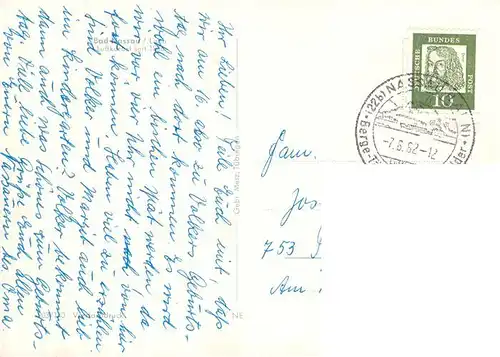 Ihr Lieben! Teile Euch mit, daß
wir am 16. also zu Volkers Geburts-
tag nach dort kommen. Es wird
wohl ein bischen spät werden da
wir vor vier Uhr nicht von hier
fort können. Haben viel zu erzählen
Sind Volker und Margit auch lieb
im Kindergarten? Volker bekommt
dann auch was schönes zum Geburts-
tag. Viele liebe Grüße Euch Allen
von Euren
Nassauern der Oma.
Bad Nassau / L
Gebr. Metz, Tübingen
NE
DEUTSCHE
BUNDES
POST
10
(22b) NASSAU
-7.6.62-12
Berge
Fam.
Jos
753
Am